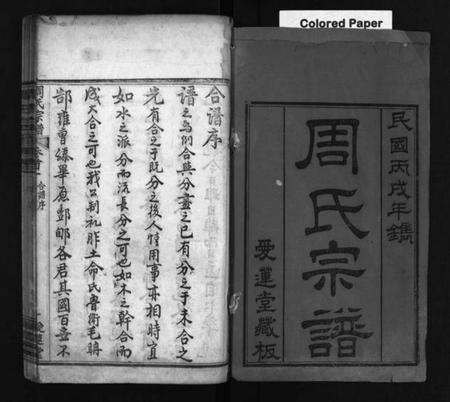 Colored Paper
民國丙戌年鐫
周氏宗譜
愛蓮堂藏板
合譜序
譜之為例合與分盡之已有分之于未合之
先有合之于既分之後人情用事亦相時宜
如水之派分而流長分之可也如木之幹合而
成大合之可也我公制礼胙土命氏魯衛毛聃
郜雍曹滕畢原酆郇各君其國百世不
周氏宗譜
合譜序